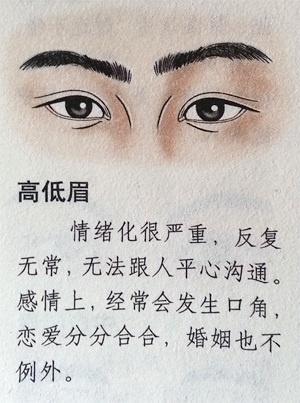 高低眉
情绪化很严重，反复
无常，无法跟人平心沟通。
感情上，经常会发生口角，
恋爱分分合合，婚姻也不
例外。